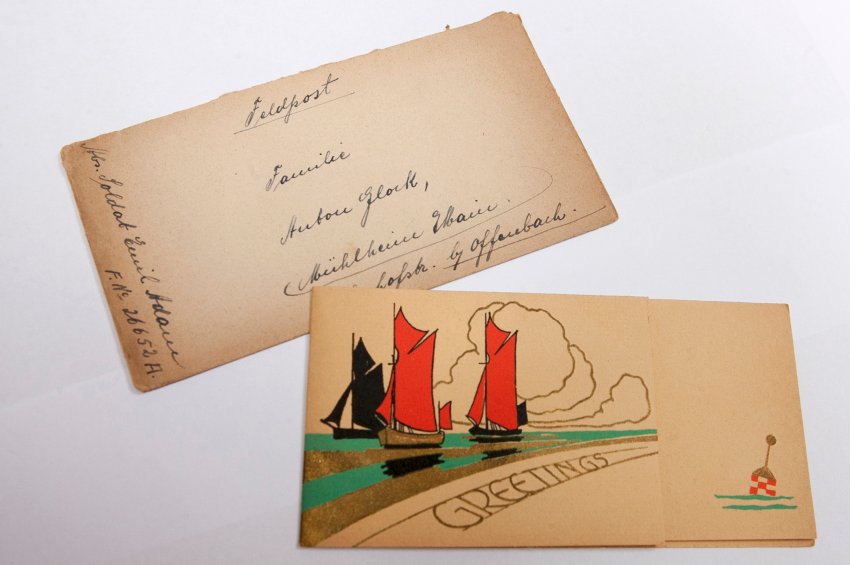 Feldpost
Familie
Anton Glock,
Mühlheim Main.
hofstr. by Offenbach.
Abs. Soldat Emil Adam
F. No 26652 A.
GREETINGS